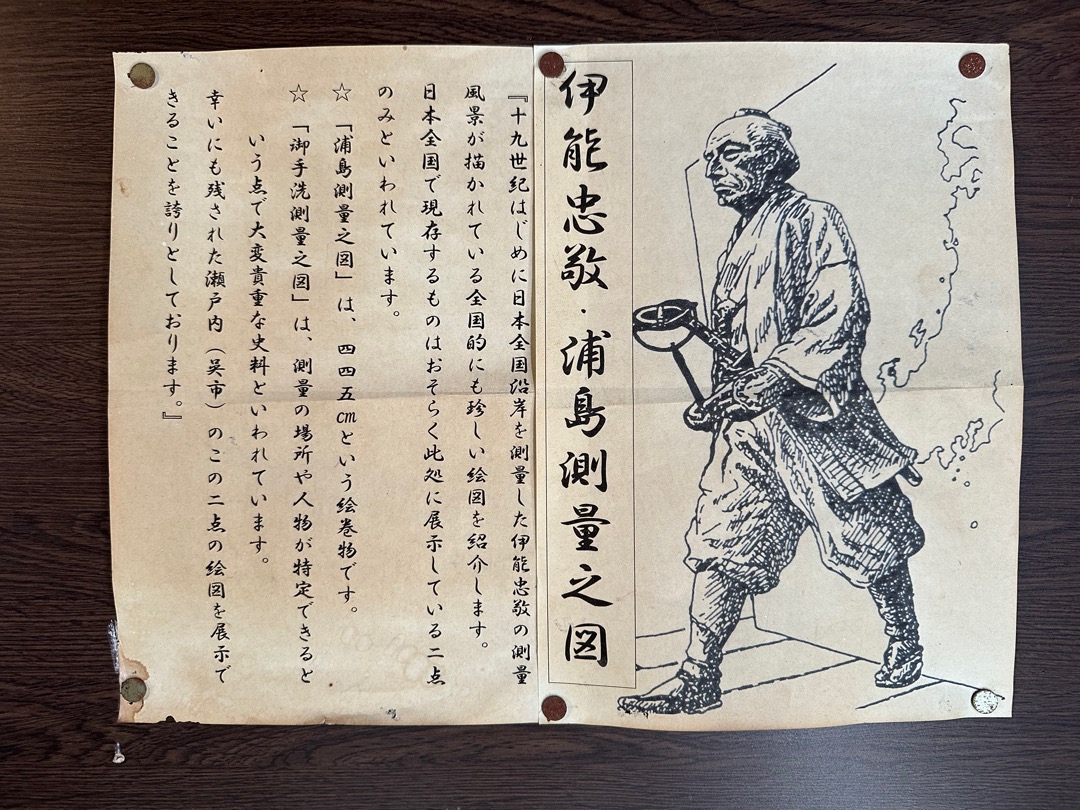 伊能忠敬・浦島測量之図
『十九世紀はじめに日本全国沿岸を測量した伊能忠敬の測量
風景が描かれている全国的にも珍しい絵図を紹介します。
日本全国で現存するものはおそらく此処に展示している二点
のみといわれています。
☆「浦島測量之図」は、四四五㎝という絵巻物です。
☆「御手洗測量之図」は、測量の場所や人物が特定できると
いう点で大変貴重な史料といわれています。
幸いにも残された瀬戸内（呉市）のこの二点の絵図を展示で
きることを誇りとしております。』